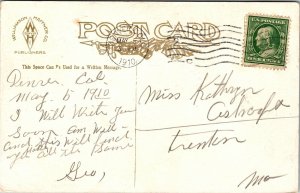 WILLIAMSON-HAFFNER CO.
PUBLISHERS.
POST CARD
This Space Can Be Used for a Written Message.
1910
Denver Col
May 5 1910
I Will Write You
Soon am Well
and this Will find
you all the Same
Geo,
Miss Kathryn
Trenton
Mo